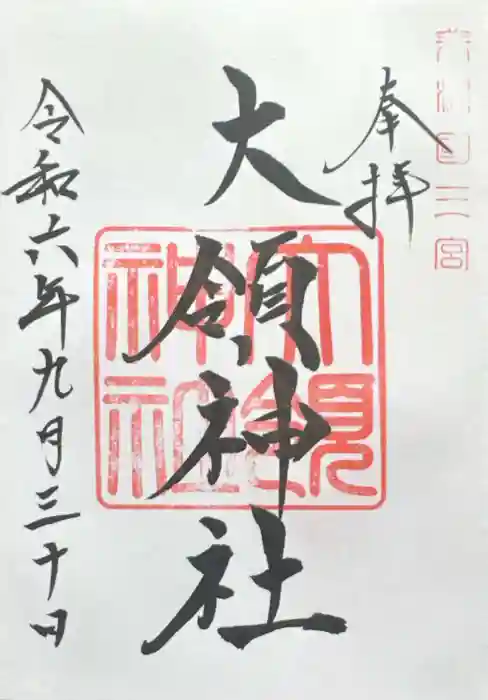 美濃国三宮
奉拝
大領神社
大領
神社
令和六年九月三十日